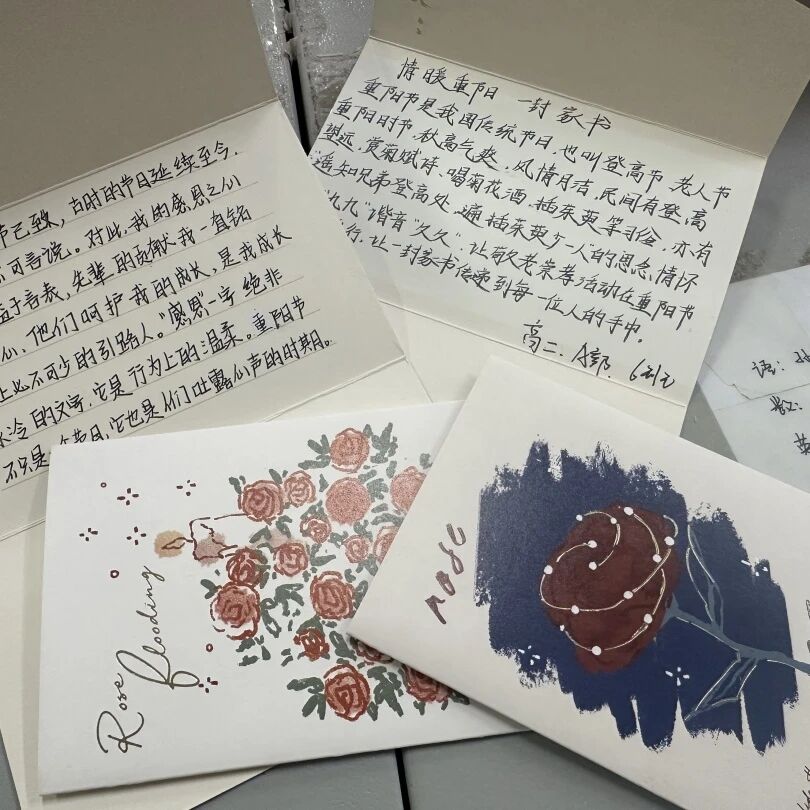 节已至,古时的节日延续至今,
不可言说。对此,我的感恩之心
溢于言表,先辈的贡献我一直铭
心,他们呵护我的成长,是我成长
上必不可少的引路人。“感恩”一字绝非
冰冷的文字,它是行为上的温柔。重阳节
不只是一个节日,它也是人们吐露心声的时期。
情暖重阳 一封家书
重阳节是我国传统节日,也叫登高节、老人节
重阳时节,秋高气爽,风情月洁,民间有登高
望远、赏菊赋诗、喝菊花酒、插茱萸等习俗,亦有
遥知兄弟登高处,遍插茱萸少一人的思念情怀
“九九”谐音“久久”,让敬老崇孝活动在重阳节
行,让一封家书传递到每一位人的手中。
高二、A部
Rose
flooding
rose
语: